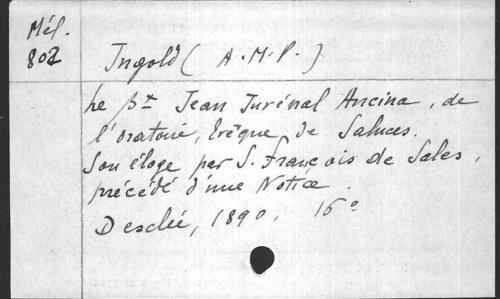 Mél.
802
Ingold (A.M.P.)
Le bx Jean Juvénal Ancina, de
l'oratoire, Evêque de Saluces.
Son éloge par S. François de Sales,
précédé d'une Notice.
Desclée, 1890. 16°